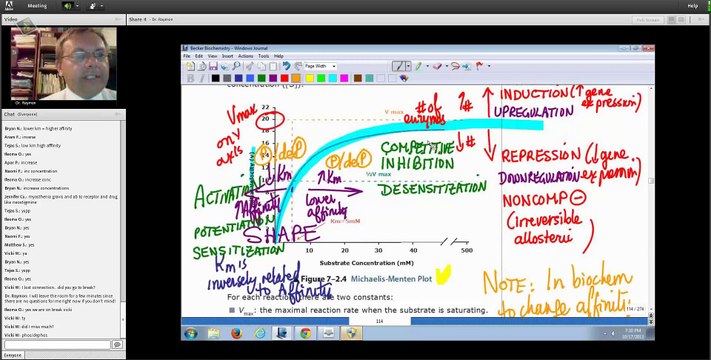 Meeting
Video
Share 4 - Dr. Raymon
Full Screen
Dr. Raymon
Becker Biochemistry - Windows Journal
File Edit View Insert Actions Tools Help
Page Width
concentration ([S]).
Vmax
on Y
axis
22
20
18
V max
# of
enzymes
↑#
↓#
↑ INDUCTION (↑gene
expression)
UPREGULATION
P/deP
P/deP
COMPETITIVE
INHIBITION
½V max
DESENSITIZATION
↓ REPRESSION (↓gene
DOWNREGULATION
NONCOMP ⊖
(irreversible
allosteric)
ACTIVATION
POTENTIATION
SENSITIZATION
↓Km
↑Affinity
↑Km
lower
affinity
SHAPE
20 40 60 500
Substrate Concentration (mM)
Km is
inversely related
to Affinity
Figure 7-2.4 Michaelis-Menten Plot
NOTE: In biochem
to change affiniti
For each reaction, there are two constants:
Vmax: the maximal reaction rate when the substrate is saturating.
114
114 / 274
7:35 PM
10/17/2013
Chat (Everyone)
Bryan N.: lower km = higher affinity
Anam F.: inverse
Tejas S.: low km high affinity
Reena G.: yes
Apar P.: increase
Naomi F.: inc concentration
Reena G.: increase conc
Bryan N.: increase concentrations
Tejas S.: yapp
Reena G.: yes
Naomi F.: yes
Matthew S.: yes
Vicki W.: ya
Tejas S.: yes
Vicki W.: I lost connection.. did you go to break?
Dr. Raymon: I will leave the room for few minutes since there are no questions for me right now if you don't mind!
Reena G.: yes we are on break vicki
Vicki W.: ty
Vicki W.: did I miss much?
Vicki W.: phos/dephos
Everyone